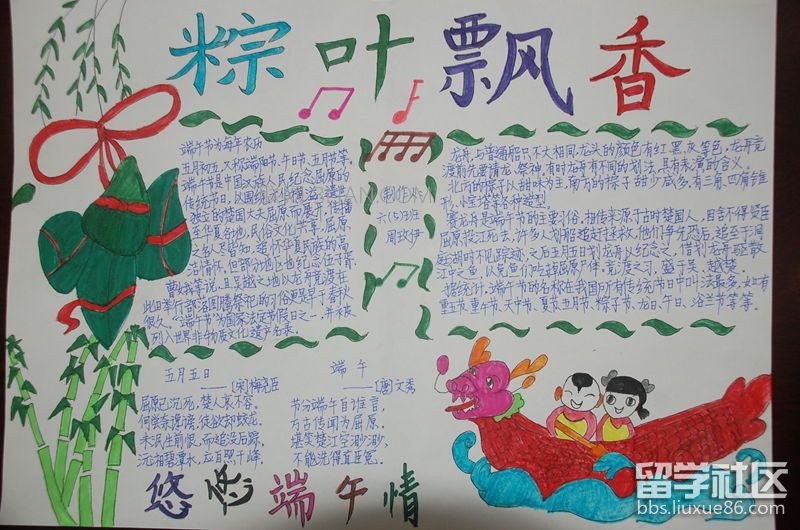 粽叶飘香
端午节为每年农历
五月初五,又称端阳节、午日节、五月节等。
端午节是中国汉族人民纪念屈原的
传统节日,以围绕才华横溢、遗世
独立的楚国大夫屈原而展开,传播
至华夏各地,民俗文化共享,屈原
之名人尽皆知,追怀华夏民族的高
洁情怀。但部分地区也有纪念伍子胥、
曹娥等说,且吴越之地以龙舟竞渡在
此日举行部落图腾祭祀的习俗更是早于春秋
很久。“端午节”为国家法定节假日之一,并被
列入世界非物质文化遗产名录。
制作人:
六(5)班
周玟伊
龙舟,与普通船只不大相同,龙头的颜色有红、黑、灰等色,龙舟竞
渡前先要请龙、祭神,有时龙舟有不同的划法,具有表演的含义。
北方的粽子以甜味为主,南方的粽子甜少咸多,有三角、四角锥
形、小宝塔等各种造型。
赛龙舟是端午节的主要习俗,相传来源于古时楚国人,因舍不得贤臣
屈原投江死去,许多人划船追赶去拯救,他们争先恐后,追至于洞
庭湖时不见踪迹,之后五月五日划龙舟以纪念之,借划龙舟驱散
江中之鱼,以免鱼们吃掉屈原尸体。竞渡之习,盛于吴、越、楚。
据统计,端午节的名称在我国所有传统节日中叫法最多,如:有
重五节、重午节、天中节、夏节、五月节、粽子节、龙日、午日、浴兰节等等。
五月五日
——[宋]梅尧臣
屈原已沉死,楚人哀不容。
何尝奈谗谤,徒欲却蛟龙。
未泯生前恨,而追没后踪。
沅湘碧潭水,应自照千峰。
端午
——[唐]文秀
节分端午自谁言,
万古传闻为屈原。
堪笑楚江空渺渺,
不能洗得直臣冤。
悠悠端午情
留学社区
bbs.liuxue86.com